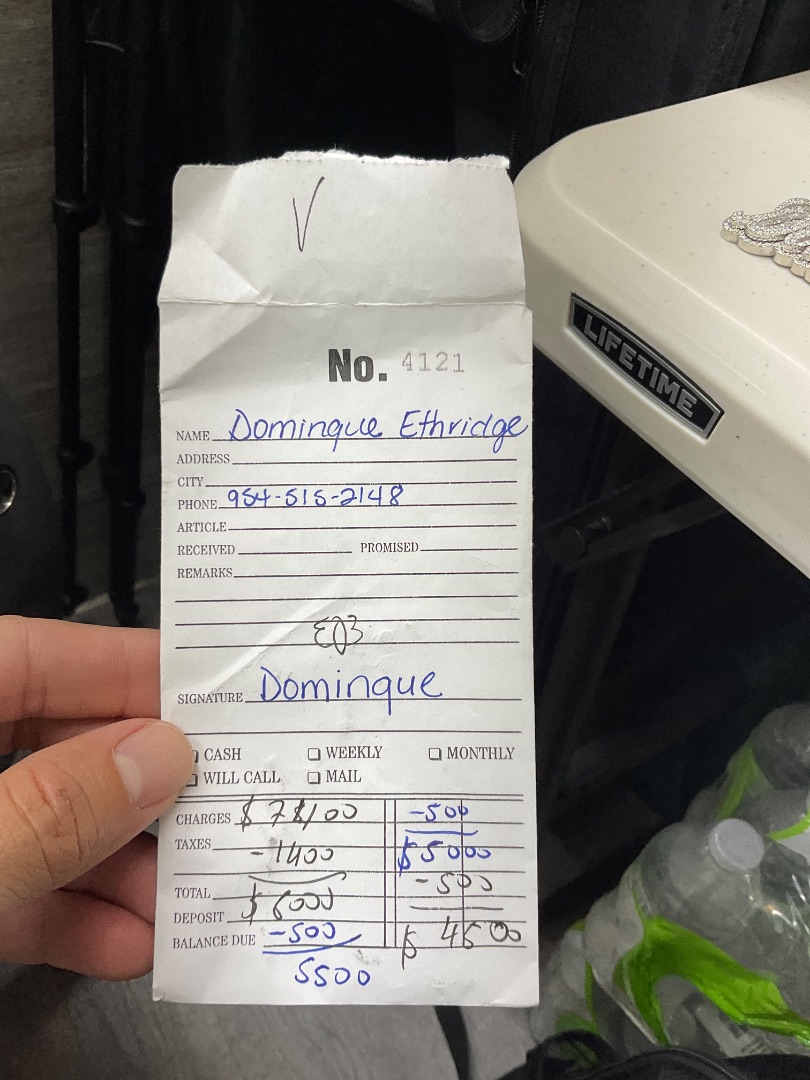 V
No. 4121
NAME Dominque Ethridge
ADDRESS
CITY
PHONE 954-515-2148
ARTICLE
RECEIVED PROMISED
REMARKS
SIGNATURE Dominque
CASH WEEKLY MONTHLY
WILL CALL MAIL
CHARGES -500
TAXES -1400 $5000
-500
TOTAL $6000
DEPOSIT
BALANCE DUE -500 $ 4500
5500
LIFETIME